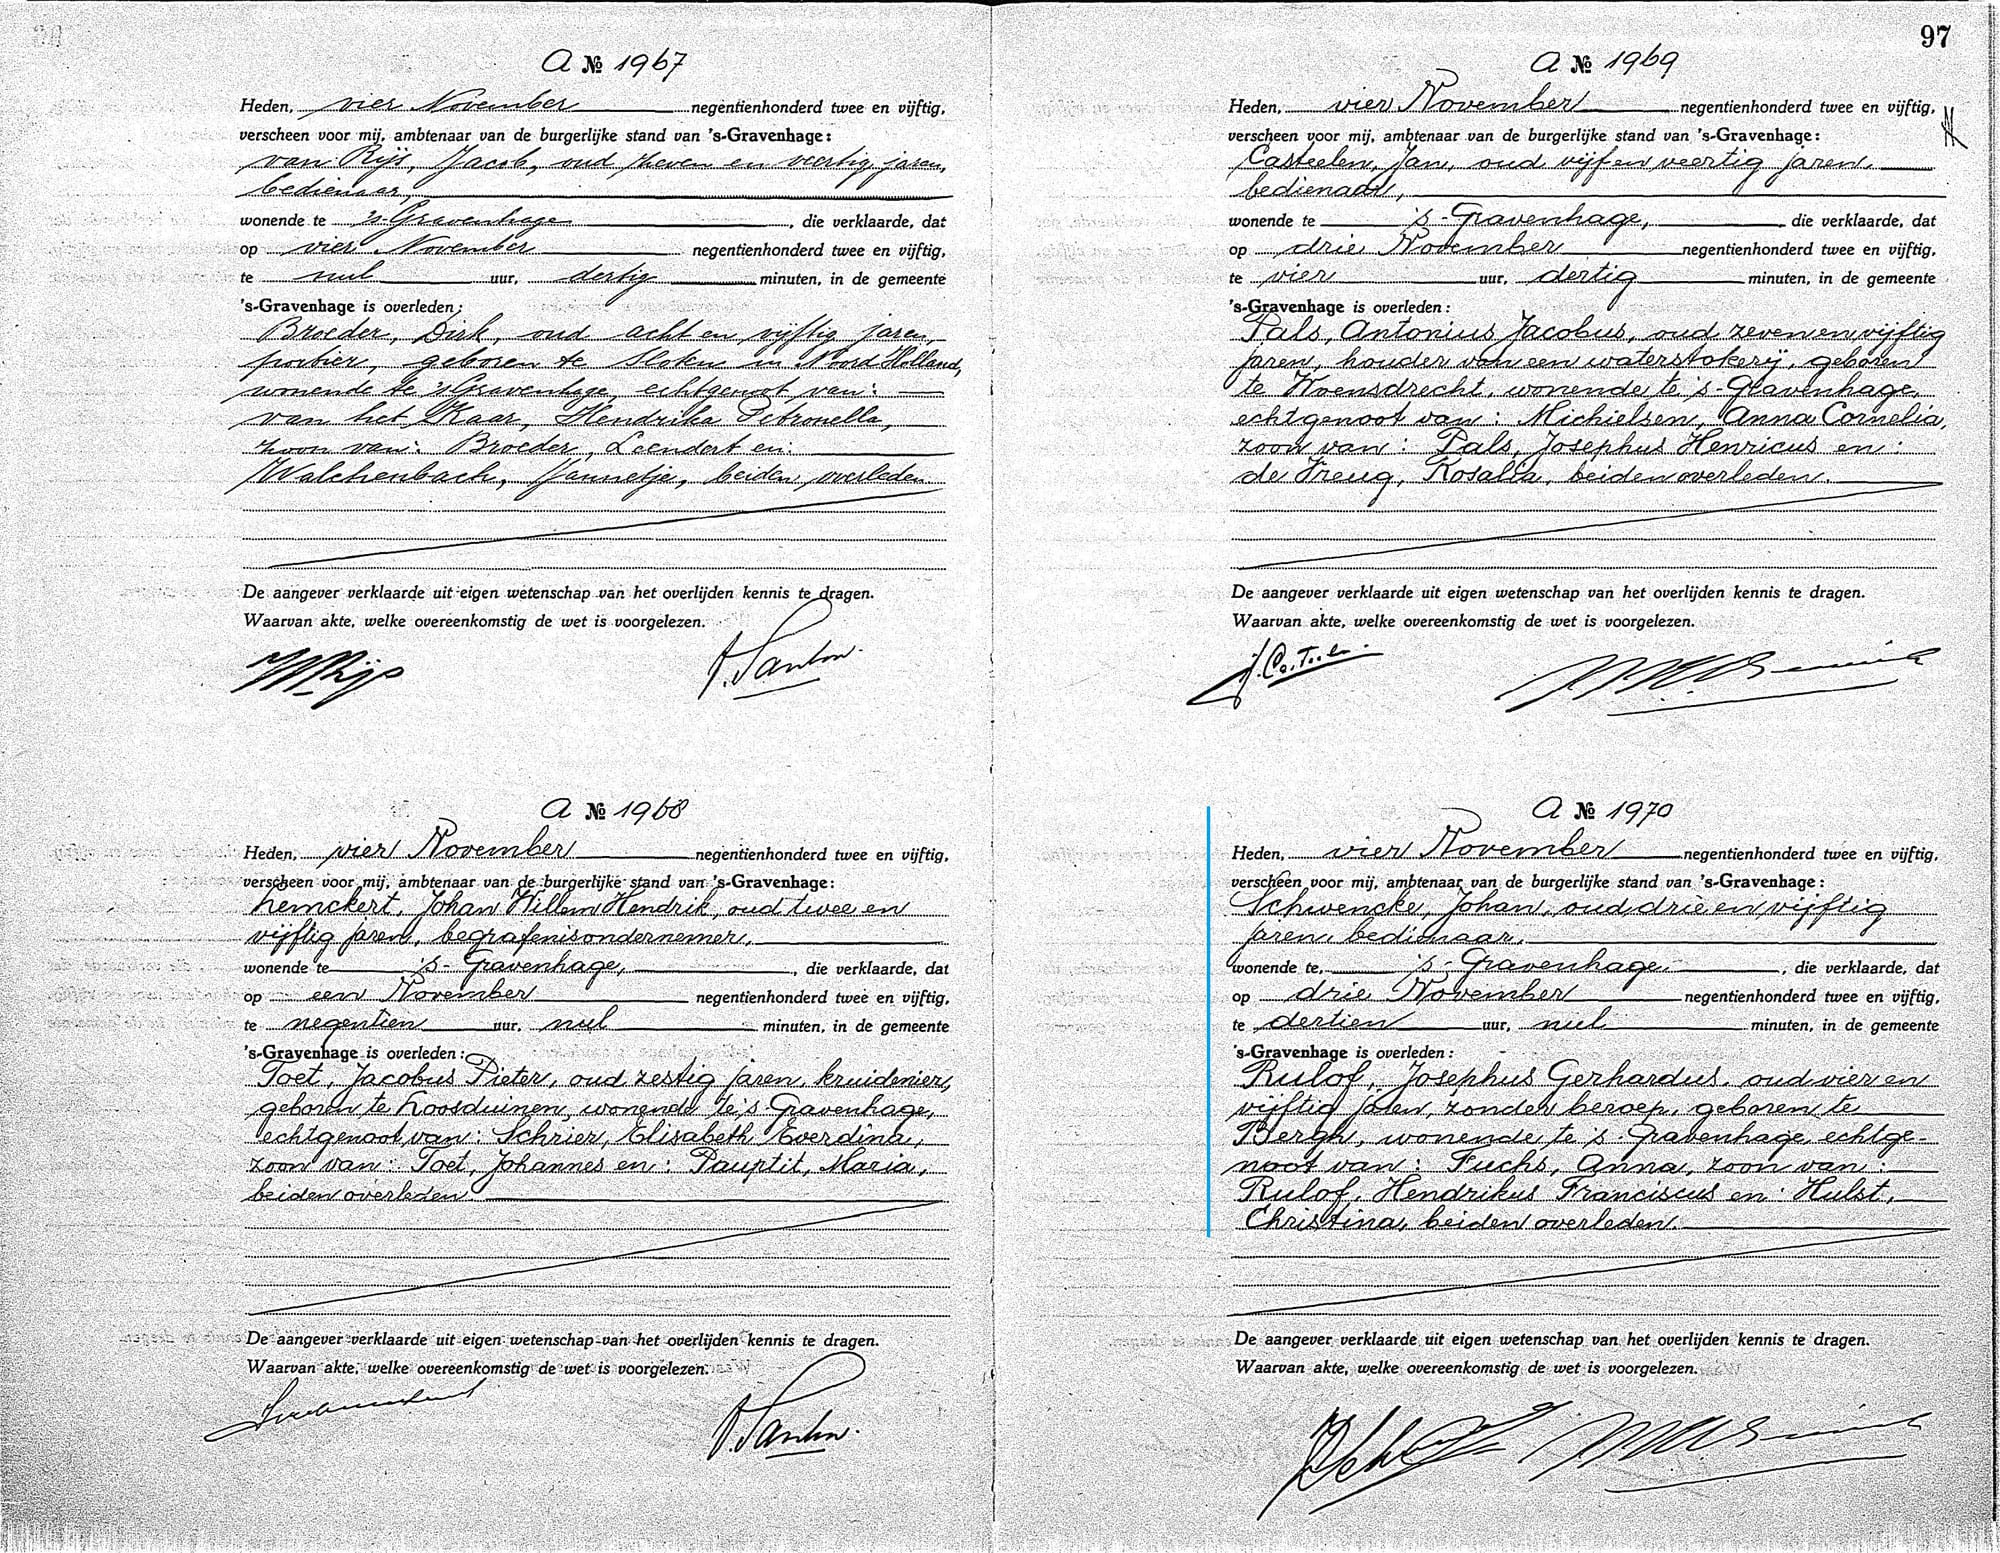 A № 1967
Heden, vier November negentienhonderd twee en vijftig,
verscheen voor mij, ambtenaar van de burgerlijke stand van 's-Gravenhage:
van Rijs, Jacob, oud zeven en veertig jaren,
bedienaar,
wonende te 's-Gravenhage, die verklaarde, dat
op vier November negentienhonderd twee en vijftig,
te nul uur, dertig minuten, in de gemeente
's-Gravenhage is overleden:
Broeder, Dirk, oud acht en vijftig jaren,
portier, geboren te Sloten in Noord Holland,
wonende te 's Gravenhage, echtgenoot van:
van het Kaar, Hendrika Petronella,
zoon van: Broeder, Leendert en:
Walchenbach, Jannetje, beiden overleden.
De aangever verklaarde uit eigen wetenschap van het overlijden kennis te dragen.
Waarvan akte, welke overeenkomstig de wet is voorgelezen.
A № 1968
Heden, vier November negentienhonderd twee en vijftig,
verscheen voor mij, ambtenaar van de burgerlijke stand van 's-Gravenhage:
Lemckert, Johan Willem Hendrik, oud twee en
vijftig jaren, begrafenisondernemer,
wonende te 's-Gravenhage, die verklaarde, dat
op een November negentienhonderd twee en vijftig,
te negentien uur, nul minuten, in de gemeente
's-Gravenhage is overleden:
Toet, Jacobus Pieter, oud zestig jaren, kruidenier,
geboren te Loosduinen, wonende te 's-Gravenhage,
echtgenoot van: Schrier, Elisabeth Everdina,
zoon van: Toet, Johannes en: Pauptit, Maria,
beiden overleden
De aangever verklaarde uit eigen wetenschap van het overlijden kennis te dragen.
Waarvan akte, welke overeenkomstig de wet is voorgelezen.
97
A № 1969
Heden, vier November negentienhonderd twee en vijftig,
verscheen voor mij, ambtenaar van de burgerlijke stand van 's-Gravenhage:
Casteelen, Jan, oud vijf en veertig jaren,
bedienaar,
wonende te 's-Gravenhage, die verklaarde, dat
op drie November negentienhonderd twee en vijftig,
te vier uur, dertig minuten, in de gemeente
's-Gravenhage is overleden:
Pals, Antonius Jacobus, oud zeven en vijftig
jaren, houder van een waterstokerij, geboren
te Woensdrecht, wonende te 's-Gravenhage,
echtgenoot van: Michielsen, Anna Cornelia,
zoon van: Pals, Josephus Henricus en:
de Freug, Rosalia, beiden overleden.
De aangever verklaarde uit eigen wetenschap van het overlijden kennis te dragen.
Waarvan akte, welke overeenkomstig de wet is voorgelezen.
A № 1970
Heden, vier November negentienhonderd twee en vijftig,
verscheen voor mij, ambtenaar van de burgerlijke stand van 's-Gravenhage:
Schwencke, Johan, oud drie en vijftig
jaren, bedienaar,
wonende te, 's-Gravenhage, die verklaarde, dat
op drie November negentienhonderd twee en vijftig,
te dertien uur, nul minuten, in de gemeente
's-Gravenhage is overleden:
Rulof, Josephus Gerhardus, oud vier en
vijftig jaren, zonder beroep, geboren te
Bergh, wonende te 's-Gravenhage, echtge-
noot van: Fuchs, Anna, zoon van:
Rulof, Hendrikus Franciscus en: Hulst,
Christina, beiden overleden.
De aangever verklaarde uit eigen wetenschap van het overlijden kennis te dragen.
Waarvan akte, welke overeenkomstig de wet is voorgelezen.